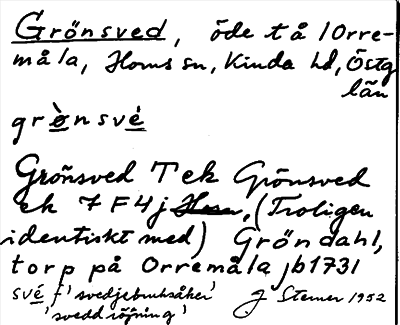 Grönsved, öde tå / Orre-
måla, Horns sn, Kinda hd, Östg
län
grø̀nsvé
Grönsved Tek Grönsved
ek 7F4j, (Troligen
identiskt med) Gröndahl,
torp på Orremåla jb 1731
své f 'svedjebruksåker'
'svedd röjning' J Sterner 1952